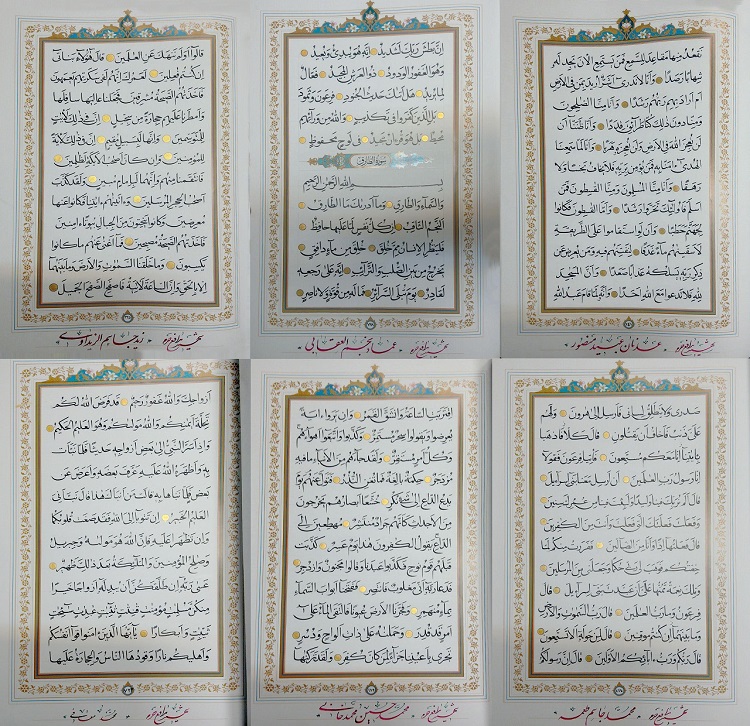 نقعد منها مقاعد للسمع فمن يستمع الآن يجد له
شهابا رصدا وأنا لا ندري أشر أريد بمن في الأرض
أم أراد بهم ربهم رشدا وأنا منا الصالحون
ومنا دون ذلك كنا طرائق قددا وأنا ظننا أن
لن نعجز الله في الأرض ولن نعجزه هربا وأنا لما سمعنا
الهدى آمنا به فمن يؤمن بربه فلا يخاف بخسا ولا
رهقا وأنا منا المسلمون ومنا القاسطون فمن
أسلم فأولئك تحروا رشدا وأما القاسطون فكانوا
لجهنم حطبا وأن لو استقاموا على الطريقة
لأسقيناهم ماء غدقا لنفتنهم فيه ومن يعرض عن
ذكر ربه يسلكه عذابا صعدا وأن المساجد
لله فلا تدعوا مع الله أحدا وأنه لما قام عبد الله
عدنان عبيد منصور
إن بطش ربك لشديد إنه هو يبدئ ويعيد
وهو الغفور الودود ذو العرش المجيد فعال
لما يريد هل أتاك حديث الجنود فرعون وثمود
بل الذين كفروا في تكذيب والله من ورائهم
محيط بل هو قرآن مجيد في لوح محفوظ
سورة الطارق
بسم الله الرحمن الرحيم
والسماء والطارق وما أدراك ما الطارق
النجم الثاقب إن كل نفس لما عليها حافظ
فلينظر الإنسان مم خلق خلق من ماء دافق
يخرج من بين الصلب والترائب إنه على رجعه
لقادر يوم تبلى السرائر فما له من قوة ولا ناصر
عماد نجم العقابي
قالوا أولم ننهك عن العالمين قال هؤلاء بناتي
إن كنتم فاعلين لعمرك إنهم لفي سكرتهم يعمهون
فأخذتهم الصيحة مشرقين فجعلنا عاليها سافلها
وأمطرنا عليهم حجارة من سجيل إن في ذلك لآيات
للمتوسمين وإنها لبسبيل مقيم إن في ذلك لآية
للمؤمنين وإن كان أصحاب الأيكة لظالمين
فانتقمنا منهم وإنهما لبإمام مبين ولقد كذب
أصحاب الحجر المرسلين وآتيناهم آياتنا فكانوا عنها
معرضين وكانوا ينحتون من الجبال بيوتا آمنين
فأخذتهم الصيحة مصبحين فما أغنى عنهم ما كانوا
يكسبون وما خلقنا السماوات والأرض وما بينهما
إلا بالحق وإن الساعة لآتية فاصفح الصفح الجميل
زيد جاسم الزيداوي
صدري ولا ينطلق لساني فأرسل إلى هارون ولهم
علي ذنب فأخاف أن يقتلون قال كلا فاذهبا
بآياتنا إنا معكم مستمعون فأتيا فرعون فقولا
إنا رسول رب العالمين أن أرسل معنا بني إسرائيل
قال ألم نربك فينا وليدا ولبثت فينا من عمرك سنين
وفعلت فعلتك التي فعلت وأنت من الكافرين
قال فعلتها إذا وأنا من الضالين ففررت منكم لما
خفتكم فوهب لي ربي حكما وجعلني من المرسلين
وتلك نعمة تمنها علي أن عبدت بني إسرائيل قال
فرعون وما رب العالمين قال رب السماوات والأرض
وما بينهما إن كنتم موقنين قال لمن حوله ألا تستمعون
قال ربكم ورب آبائكم الأولين قال إن رسولكم
محمد جاسم طعمه
اقتربت الساعة وانشق القمر وإن يروا آية
يعرضوا ويقولوا سحر مستمر وكذبوا واتبعوا أهواءهم
وكل أمر مستقر ولقد جاءهم من الأنباء ما فيه
مزدجر حكمة بالغة فما تغن النذر فتول عنهم يوم
يدع الداع إلى شيء نكر خشعا أبصارهم يخرجون
من الأجداث كأنهم جراد منتشر مهطعين إلى
الداع يقول الكافرون هذا يوم عسر كذبت
قبلهم قوم نوح فكذبوا عبدنا وقالوا مجنون وازدجر
فدعا ربه أني مغلوب فانتصر ففتحنا أبواب السماء
بماء منهمر وفجرنا الأرض عيونا فالتقى الماء على
أمر قد قدر وحملناه على ذات ألواح ودسر
تجري بأعيننا جزاء لمن كان كفر ولقد تركناها
محمد حسين
أزواجك والله غفور رحيم قد فرض الله لكم
تحلة أيمانكم والله مولاكم وهو العليم الحكيم
وإذ أسر النبي إلى بعض أزواجه حديثا فلما نبأت
به وأظهره الله عليه عرف بعضه وأعرض عن
بعض فلما نبأها به قالت من أنبأك هذا قال نبأني
العليم الخبير إن تتوبا إلى الله فقد صغت قلوبكما
وإن تظاهرا عليه فإن الله هو مولاه وجبريل
وصالح المؤمنين والملائكة بعد ذلك ظهير
عسى ربه إن طلقكن أن يبدله أزواجا خيرا
منكن مسلمات مؤمنات قانتات تائبات عابدات سائحات
ثيبات وأبكارا يا أيها الذين آمنوا قوا أنفسكم
وأهليكم نارا وقودها الناس والحجارة عليها